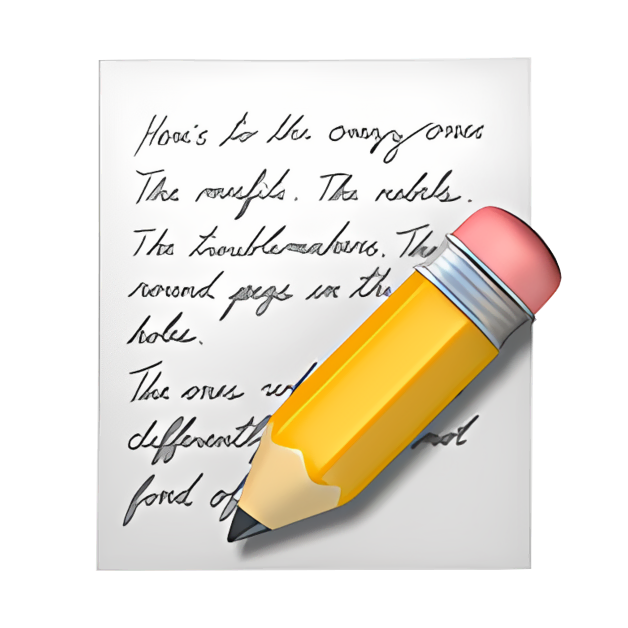 Here's to the crazy ones
The misfits. The rebels.
The troublemakers. The
round pegs in the
holes.
The ones
differently not
fond of